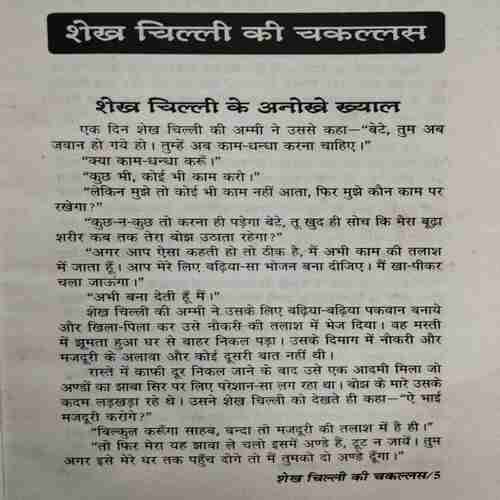 शेख चिल्ली की चकल्लस
शेख चिल्ली के अनोखे ख्याल
एक दिन शेख चिल्ली की अम्मी ने उससे कहा—“बेटे, तुम अब
जवान हो गये हो। तुम्हें अब काम-धन्धा करना चाहिए।”
“क्या काम-धन्धा करूँ।”
“कुछ भी, कोई भी काम करो।”
“लेकिन मुझे तो कोई भी काम नहीं आता, फिर मुझे कौन काम पर
रखेगा?”
“कुछ-न-कुछ तो करना ही पड़ेगा बेटे, तू खुद ही सोच कि मेरा बूढ़ा
शरीर कब तक तेरा बोझ उठाता रहेगा?”
“अगर आप ऐसा कहती हो तो ठीक है, मैं अभी काम की तलाश
में जाता हूँ। आप मेरे लिए बढ़िया-सा भोजन बना दीजिए। मैं खा-पीकर
चला जाऊँगा।”
“अभी बना देती हूँ मैं।”
शेख चिल्ली की अम्मी ने उसके लिए बढ़िया-बढ़िया पकवान बनाये
और खिला-पिला कर उसे नौकरी की तलाश में भेज दिया। वह मस्ती
में झूमता हुआ घर से बाहर निकल पड़ा। उसके दिमाग में नौकरी और
मजदूरी के अलावा और कोई दूसरी बात नहीं थी।
रास्ते में काफी दूर निकल जाने के बाद उसे एक आदमी मिला जो
अण्डों का झाबा सिर पर लिए परेशान-सा लग रहा था। बोझ के मारे उसके
कदम लड़खड़ा रहे थे। उसने शेख चिल्ली को देखते ही कहा—“ऐ भाई
मजदूरी करोगे?”
“बिल्कुल करूँगा साहब, बन्दा तो मजदूरी की तलाश में है ही।”
“तो फिर मेरा यह झाबा ले चलो इसमें अण्डे हैं, टूट न जायें। तुम
अगर इसे मेरे घर तक पहुँच दोगे तो मैं तुमको दो अण्डे दूँगा।”
शेख चिल्ली की चकल्लस/5